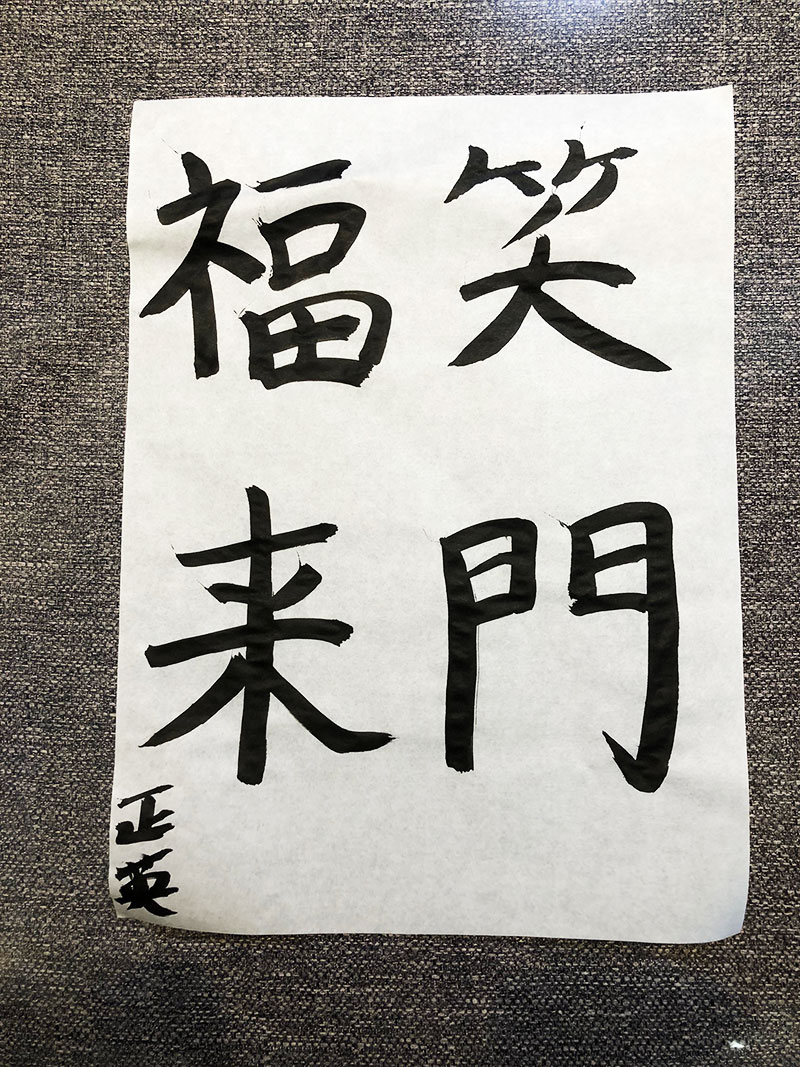 笑門
福来
正英